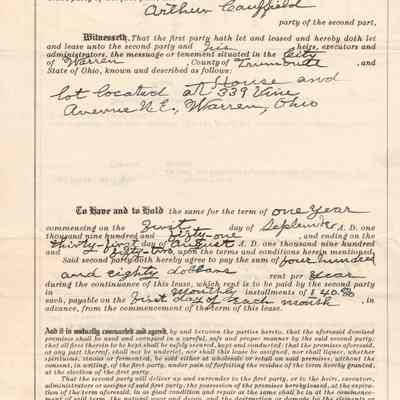 Arthur Caulfield
party of the second part,
Witnesseth, That the first party hath let and leased and hereby doth let
and lease unto the second party and his heirs, executors and
administrators, the messuage or tenement situated in the City
of Warren, County of Trumbull, and
State of Ohio, known and described as follows:
House and
lot located at 339 Vine
Avenue N.E., Warren, Ohio
To Have and to Hold the same for the term of one Year
commencing on the First day of September A. D. one
thousand nine hundred and fifty-one, and ending on the
thirty-first day of August A. D. one thousand nine hundred
and fifty-two, upon the terms and conditions herein mentioned.
Said second party doth hereby agree to pay the sum of four hundred
and eighty dollars rent per Year
during the continuance of this lease, which rent is to be paid by the second party
in Monthly installments of $40.00
each, payable on the first day of each month, in
advance, from the commencement of the term of this lease.
And it is mutually covenanted and agreed, by and between the parties hereto, that the aforesaid demised
premises shall be used and occupied in a careful, safe and proper manner by the said second party;
that all fires therein to be kept shall be safely secured, kept and conducted; that the premises aforesaid,
at any part thereof, shall not be underlet, nor shall this lease be assigned, nor shall liquor, whether
spirituous, vinous or fermented, be sold either at wholesale or retail on said premises, without the
consent, in writing, of the first party, under pain of forfeiting the residue of the term hereby granted,
at the election of the first party.
That the second party will deliver up and surrender to the first party, or to the heirs, executors,
administrators or assigns of said first party, the possession of the premises hereby leased, at the expira-
tion of the term aforesaid, in as good condition and repair as the same shall be in at the commence-
ment of said term, the natural wear and decay, and the destruction or damage by the elements or